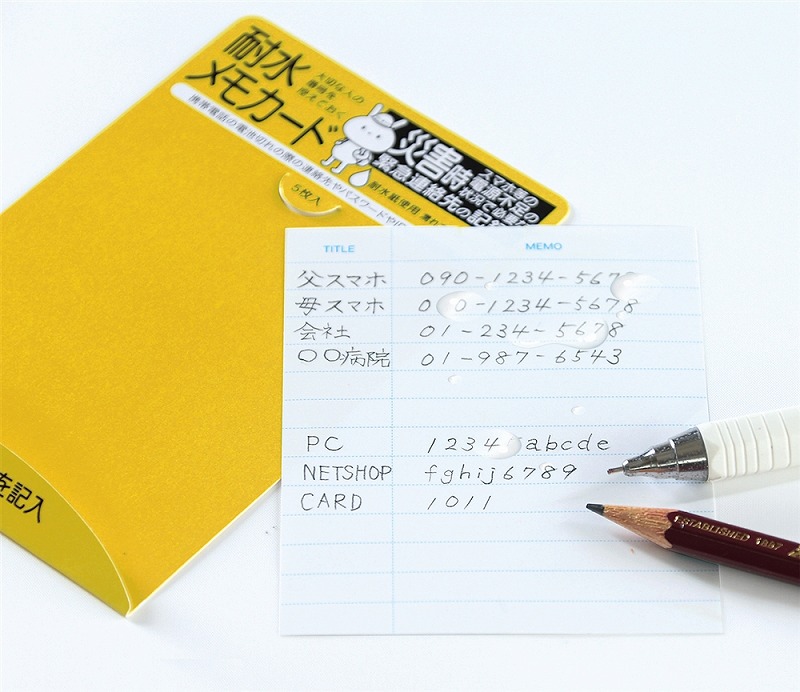 耐水
メモカード
大切な人の
連絡を
控えておく
携帯電話の電池切れの際の連絡先やパスワードやID
災害時
スマホ等の
電源不足の
状況で必要な
緊急連絡先の記録
耐水紙使用
5枚入
を記入
TITLE MEMO
父スマホ 090-1234-5678
母スマホ 0 0-1234-5678
会社 01-234-5678
〇〇病院 01-987-6543
PC 1234 abcde
NETSHOP fghij6789
CARD 1011
ESTABLISHED 1887